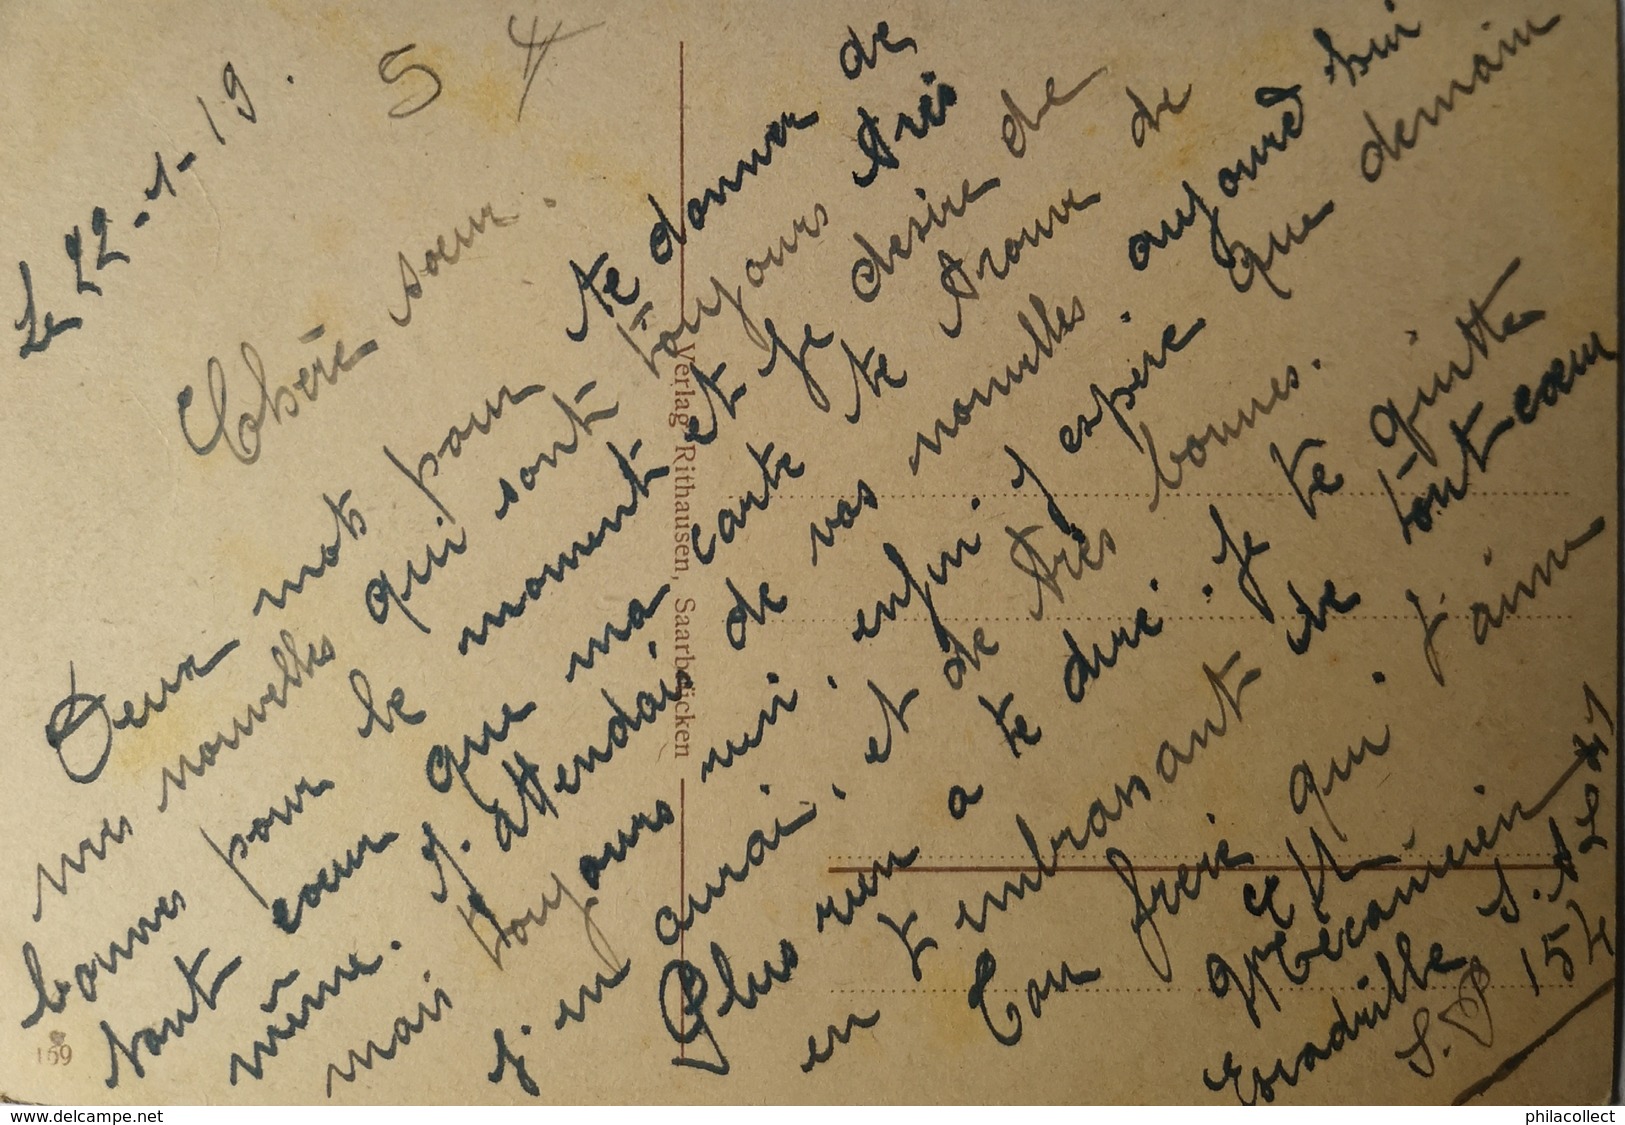 Le 22-1-19.
54
Chère soeur.
Deux mots pour te donner de
mes nouvelles qui sont toujours très
bonnes pour le moment et je desire de
tout coeur que ma carte te trouve de
même. J'attendais de vos nouvelles aujourd hui
mais toujours rien, enfin j espère que demain
j'en aurai, et de très bonnes.
Plus rien a te dire. Je te quitte
en t embrassant de tout coeur
Ton frère qui t'aime
Mécanicien
Escadrille S.A.L
S.P 154
Verlag Rithausen, Saarbrücken
169
www.delcampe.net
philacollect